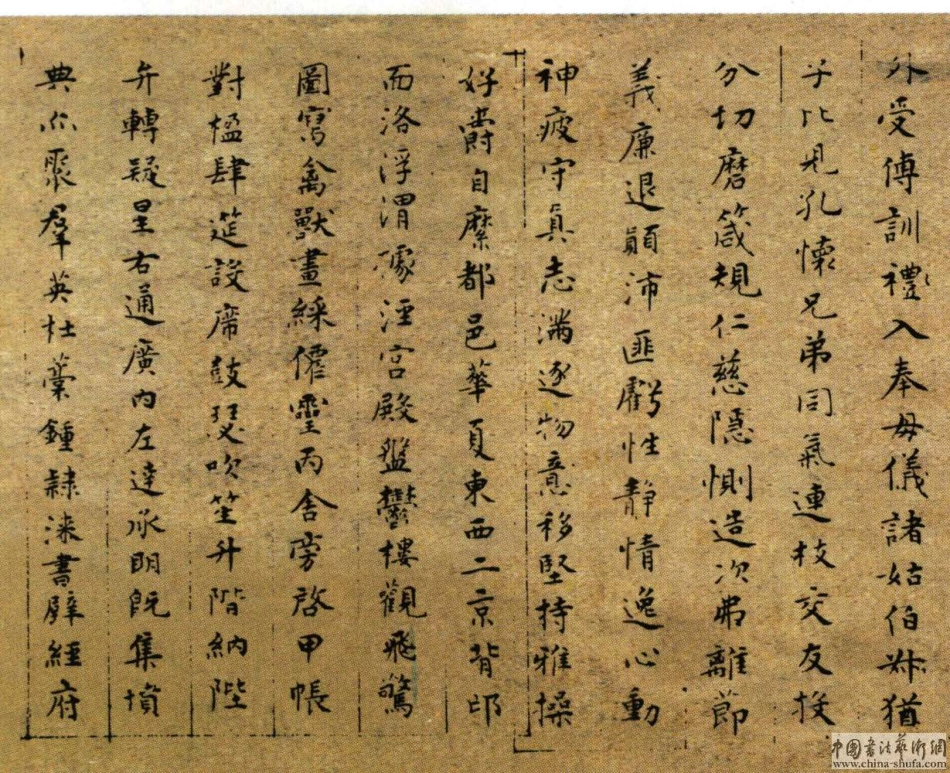 外受傅訓禮入奉母儀諸姑伯姊猶
子比兒孔懷兄弟同氣連枝交友投
分切磨箴規仁慈隱惻造次弗離節
義廉退顛沛匪虧性靜情逸心動
神疲守真志滿逐物意移堅持雅操
好爵自縻都邑華夏東西二京背邙
面洛浮渭據涇宮殿盤鬱樓觀飛驚
圖寫禽獸畫綵僊靈丙舍旁啓甲帳
對楹肆筵設席鼓瑟吹笙升階納陛
弁轉疑星右通廣內左達承明既集墳
典亦聚羣英杜藁鍾隸漆書壁經府
中国書法藝術網
www.china-shufa.com